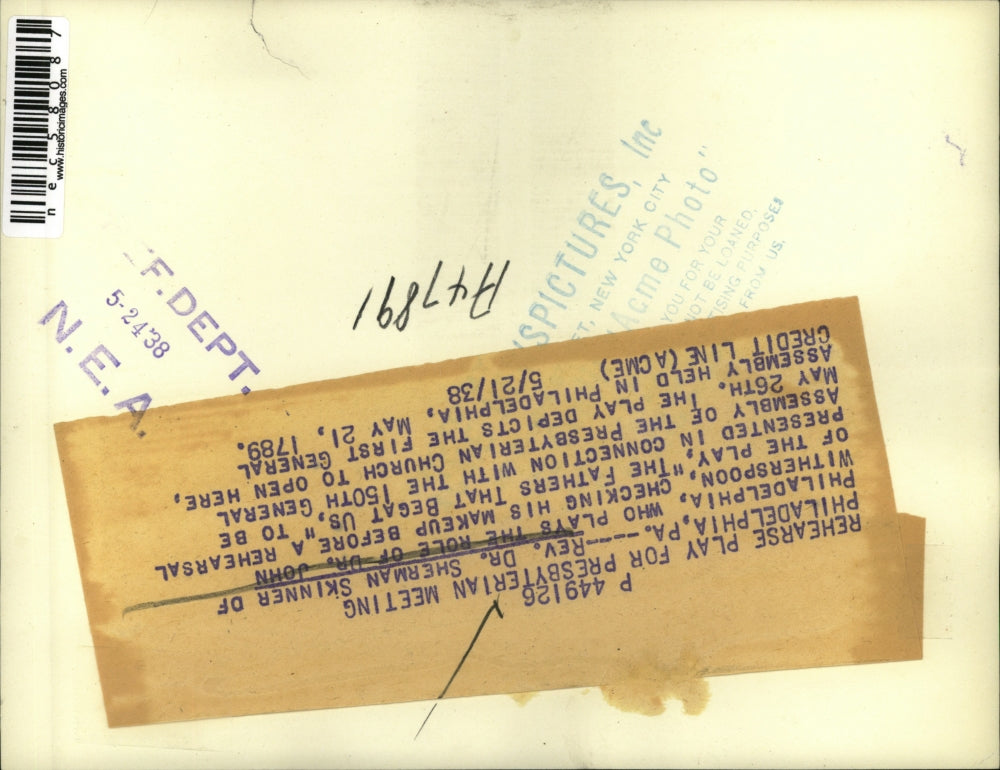 nec58087
www.historicimages.com
SPICTURES, Inc
ST, NEW YORK CITY
"Acme Photo"
YOU FOR YOUR
NOT BE LOANED,
TISING PURPOSES
FROM US.
F. DEPT.
5-24'38
N. E. A.
A47891
P 449126
REHEARSE PLAY FOR PRESBYTERIAN MEETING
PHILADELPHIA, PA.----REV. DR. SHERMAN SKINNER OF
PHILADELPHIA, WHO PLAYS THE ROLE OF DR. JOHN
WITHERSPOON, CHECKING HIS MAKEUP BEFORE A REHEARSAL
OF THE PLAY, "THE FATHERS THAT BEGAT US," TO BE
PRESENTED IN CONNECTION WITH THE 150TH GENERAL
ASSEMBLY OF THE PRESBYTERIAN CHURCH TO OPEN HERE,
MAY 26TH. THE PLAY DEPICTS THE FIRST GENERAL
ASSEMBLY HELD IN PHILADELPHIA, MAY 21, 1789.
CREDIT LINE (ACME) 5/21/38